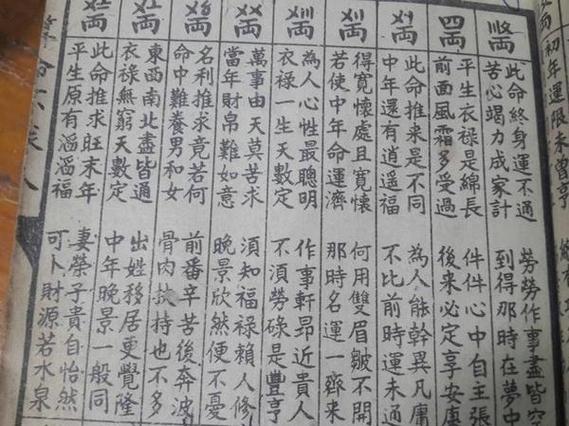 両
初年運限未曾亨
四両
此命終身運不通 勞勞作事盡皆空
苦心竭力成家計 到得那時在夢中
平生衣禄是綿長 件件心中自主張
前面風霜多受過 後来必定享安康
此命推来是不同 為人能幹異凡庸
中年還有逍遥福 不比前時運未通
得寛懷處且寛懷 何用雙眉皺不開
若使中年命運濟 那時名運一齊来
為人心性最聰明 作事軒昂近貴人
衣禄一生天數定 不須勞碌是豐亨
萬事由天莫苦求 須知福禄賴人修
當年財帛難如意 晚景欣然便不憂
名利推求竟若何 前番辛苦後奔波
命中難養男和女 骨肉扶持也不多
東西南北盡皆通 出姓移居更覺隆
衣禄無窮天數定 中年晚景一般同
此命推求旺末年 妻榮子貴自怡然
平生原有滔滔福 可卜財源若水泉